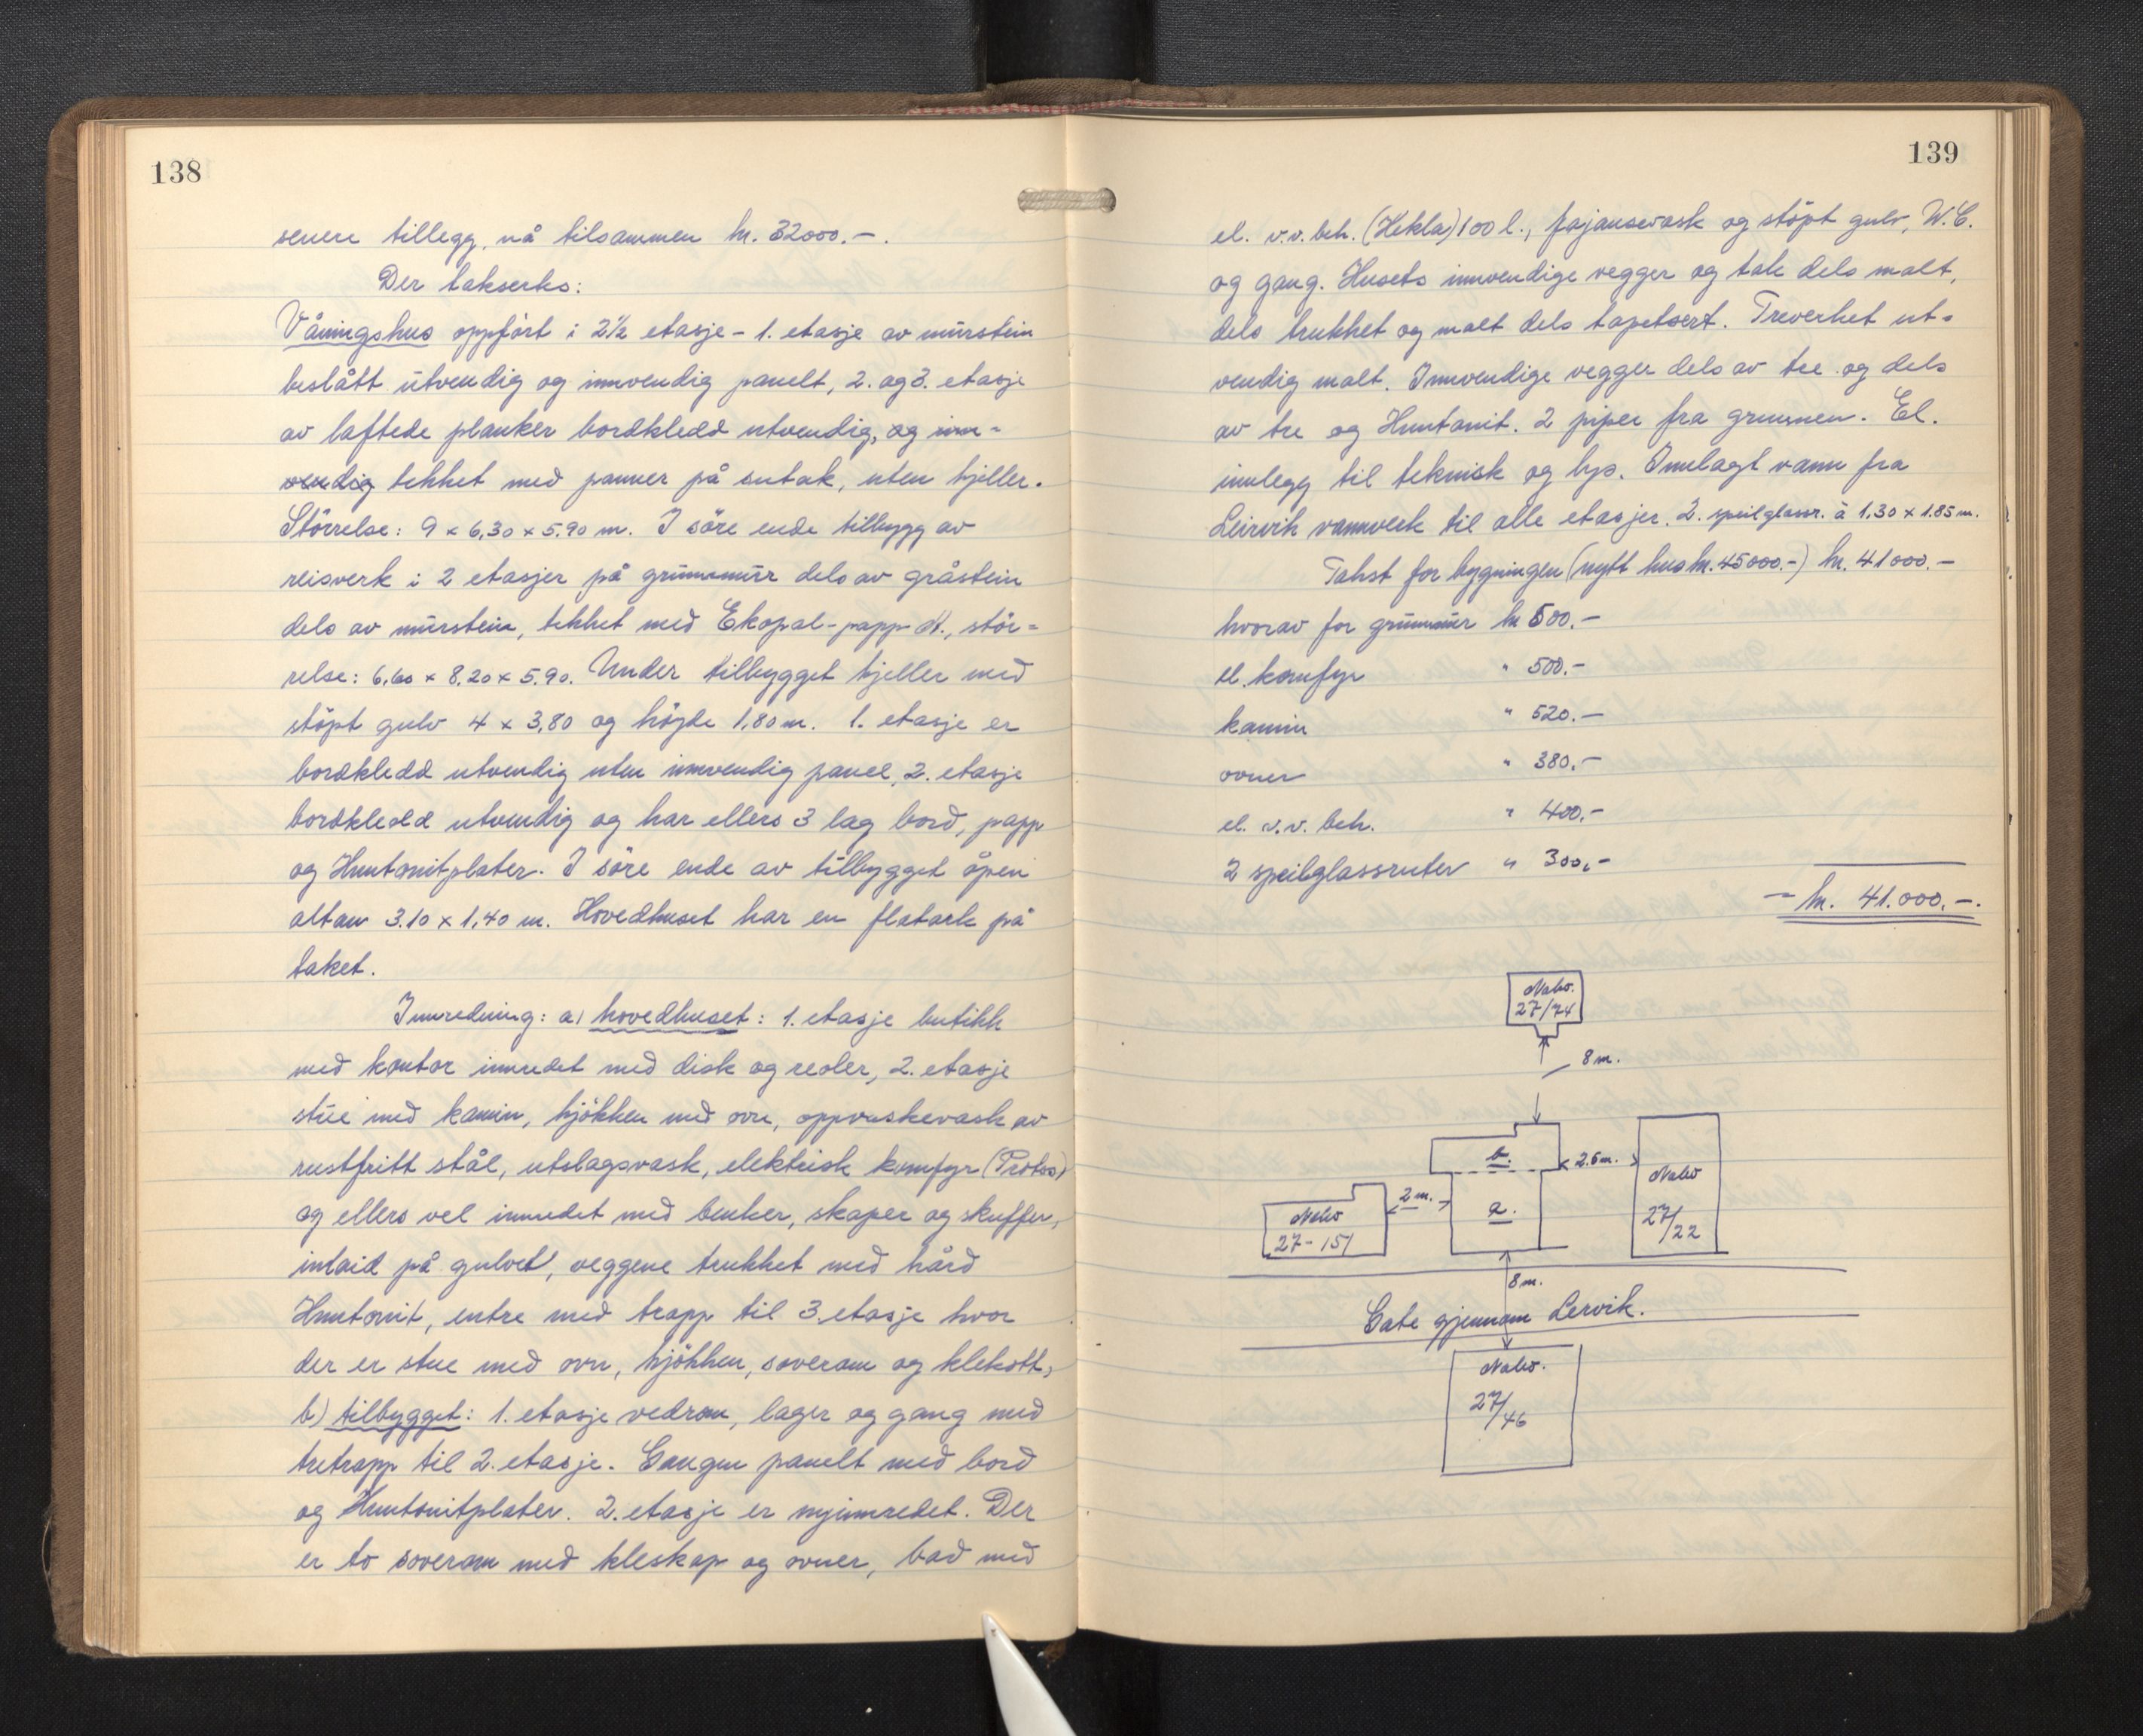 138
senere tillegg, nå tilsammen kr. 32000.-.
Der takserks:
Våningshus oppført i 2½ etasje - 1. etasje av murstein
beslått utvendig og innvendig panelt, 2. og 3. etasje
av laftede planker bordkledd utvendig, og inn-
vendig tekket med panner på sutak, uten kjeller.
Störrelse: 9 x 6,30 x 5.90 m. I söre ende tilbygg av
reisverk i 2 etasjer på grunnmur dels av gråstein
dels av murstein, tekket med Ekopal-papp, stör=
relse: 6,60 x 8.20 x 5.90. Under tilbygget kjeller med
stöpt gulv 4 x 3,80 og höyde 1,80 m. 1. etasje er
bordkledd utvendig uten innvendig panel, 2. etasje
bordkledd utvendig og har ellers 3 lag bord, papp
og Huntonitplater. I söre ende av tilbygget åpen
altan 3.10 x 1,40 m. Hovedhuset har en flatark på
taket.
Innredning: a) hovedhuset: 1. etasje butikk
med kontor innredet med disk og reoler, 2. etasje
stue med kamin, kjökken med ovn, oppvaskevask av
rustfritt stål, utslagsvask, elektrisk komfyr (Protos)
og ellers vel innredet med benker, skaper og skuffer,
inlaid på gulvet, veggene trukket med hård
Huntonit, entre med trapp til 3. etasje hvor
der er stue med ovn, kjökken, soverom og klekott,
b) tilbygget: 1. etasje vedrom, lager og gang med
tretrapp til 2. etasje. Gangen panelt med bord
og Huntonitplater. 2. etasje er nyinnredet. Der
er to soverom med kleskap og ovner, bad med
139
el. v.v. beh. (Hekla) 100 l., fajansevask og stöpt gulv, W.C.
og gang. Husets innvendige vegger og tak dels malt,
dels trukket og malt dels tapetsert. Treverket ut-
vendig malt. Innvendige vegger dels av tre og dels
av tre og Huntonit. 2 piper fra grunnen. El.
innlegg til teknisk og lys. Innlagt vann fra
Leirvik vannverk til alle etasjer. 2. speilglassr. à 1,30 x 1.85 m.
Takst for bygningen (nytt hus kr. 45000.-) kr. 41000.-
hvorav for grunnmur kr 500.-
el. komfyr " 500.-
kamin " 520.-
ovner " 380.-
el. v.v. beh. " 400,-
2 speilglassruter " 300,-
- kr. 41.000,-.
Nabo.
27/74
8 m.
b.
2.5 m.
Nabo
27/22
2 m.
a.
Nabo
27-151
8 m.
Gate gjennom Lervik.
Nabo.
27/46